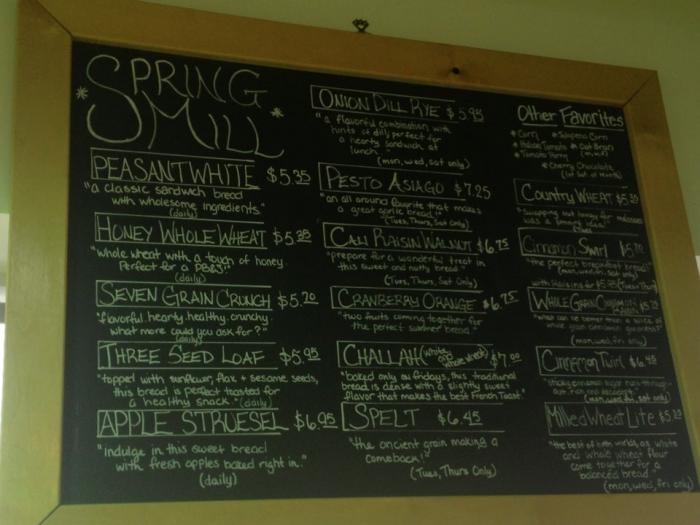 * SPRING MILL *
PEASANT WHITE $5.35
"a classic sandwich bread
with wholesome ingredients."
(daily)
HONEY WHOLE WHEAT $5.35
"whole wheat with a touch of honey.
Perfect for a PB&J!"
(daily)
SEVEN GRAIN CRUNCH $5.70
"flavorful. hearty. healthy. crunchy.
what more could you ask for?"
(daily)
THREE SEED LOAF $5.95
"topped with sunflower, flax + sesame seeds,
this bread is perfect toasted for
a healthy snack." (daily)
APPLE STRUESEL $6.95
"indulge in this sweet bread
with fresh apples baked right in."
(daily)
ONION DILL RYE $5.95
"a flavorful combination with
hints of dill, perfect for
a hearty sandwich at
lunch."
(mon, wed, sat only)
PESTO ASIAGO $7.25
"an all around favorite that makes
a great garlic bread."
(Tues, Thurs, Sat only)
CALI RAISIN WALNUT $6.75
"prepare for a wonderful treat in
this sweet and nutty bread"
(Tues, Thurs, Sat only)
CRANBERRY ORANGE $6.75
"two fruits coming together for
the perfect summer bread"
CHALLAH (white or whole wheat) $7.00
"baked only on fridays, this traditional
bread is dense with a slightly sweet
flavor that makes the best French Toast."
SPELT $6.45
"the ancient grain making a
comeback!"
(Tues, Thurs Only)
Other Favorites
* Corn * Jalapeno Corn
* Italian Tomato * Oat Bran
* Tomato Parm
* Cherry Chocolate
(1st Sat of Month)
Country Wheat
"swapping out honey for molasses
was a smart idea!"
Cinnamon Swirl
"the perfect breakfast bread!"
(mon, wed, fri, sat only)
with Raisins for
WHOLE GRAIN
"what can be better than a slice of
whole grain cinnamon goodness?"
(mon, wed, fri only)
Cinnamon Twirl $6.45
(mon, wed, fri, sat only)
Milled Wheat Lite
"the best of both worlds, as white
and whole wheat flour
come together for a
balanced bread."
(mon, wed, fri only)